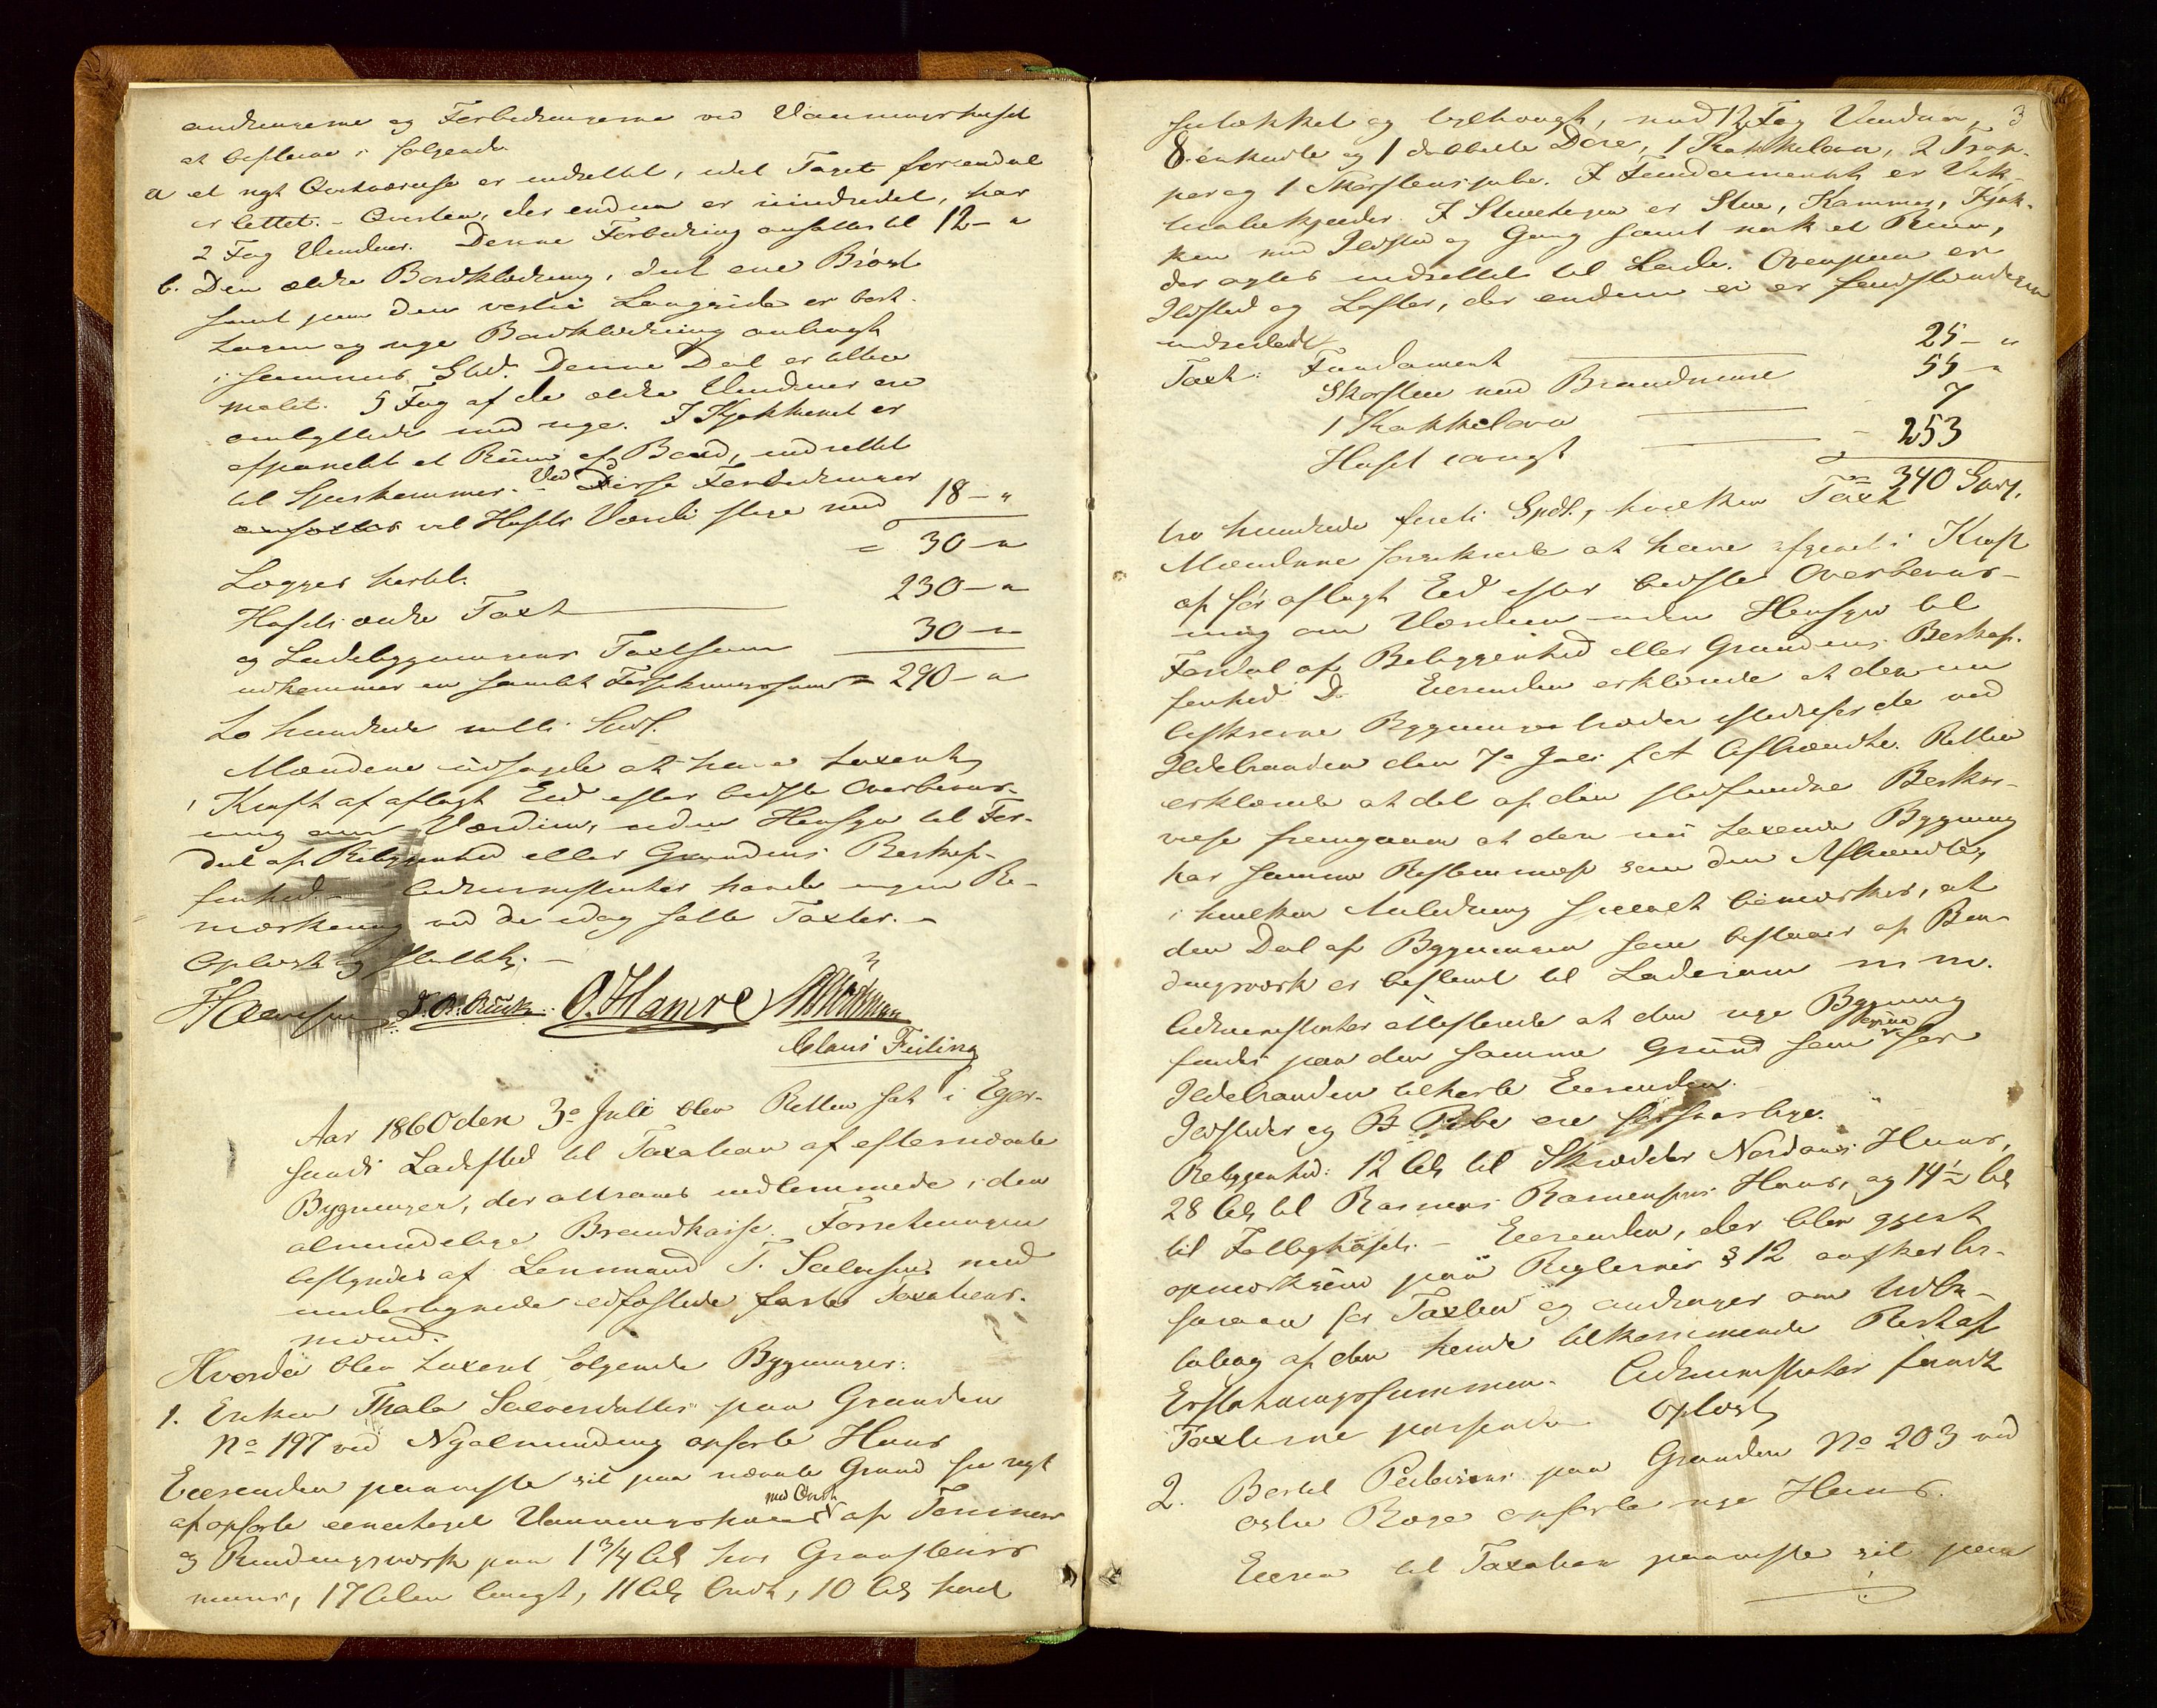 andringerne og Forbedringerne ved Vaaningshuset
at bestaae i følgende
a et nyt Qvistværelse er indrettet, idet Taget forendeel
er lettet. – Qvisten, der endnu er uindredet, har
2 Fag Vinduer. Denne Forbedring ansattes til 12 – "
b. Den ældre Bordklædning, ved ene Brøst
samt paa den vestre Langside er bort-
tagen og nye Bordklædning anbragt
i sammes Sted. Denne Deel er tillige
malet. 5 Fag af de ældre Vinduer ere
ombyttede med nye. I Kjøkkenet er
afpanelet et Rum af Bord, indrettet
til Spiskammer. Ved Disse Forbedringer
ansattes ved Husets Værdi stige med 18 – "
= 30 – "
Lægges hertil.
Husets ældre Taxt 230 – "
og Ladebygningens Taxtsum 30 – "
udkommer en samlet Forsikringssum = 290 – "
to hundrede nitti Spd.
Mændene udsagde at have taxeret
i Kraft af aflagt Eed efter bedste Overbeviis-
ning om Værdien, uden Hensyn til For-
deel af Beliggenhed eller Grundens Beskaf-
fenhed – Administrator havde ingen Be-
mærkning ved de idag satte Taxter. –
Oplæst og sluttet. –
O. Hamre
Claus Feiling
Aar 1860 den 3de Juli blev Retten sat i Eger-
sunds Ladested til Taxation af efternævnte
Bygninger, der attraaes indlemmede i den
almindelige Brandkasse. Forretningen
bestyredes af Lensmand T. Salvesen med
undertegnede edfæstede faste Taxations-
mænd.
Hvorda blev taxeret følgende Bygninger:
1. Enken Thala Salvesdatters paa Grunden
No 197 ved Nyalmending opførte Huus
Eiersenden paaviste sit paa nævnte Grund fra nyt
af opførte eenetages Vaaningshuus med Qvist af Tømmer
og Bindingsværk paa 1 3/4 Al. høi Graasteins
muur, 17 Alen langt, 11 Al. bredt, 10 Al. høit
3
tutækket og bethængt, med 12 Fag Vinduer,
8 enkelte og 1 dobbelte Døre, 1 Kakkelovn, 2 Trap-
per og 1 Skorstenspibe. I Fundamentet er Vik-
tualiekjælder. I Stueetagen er Stue, Kammer, Kjøk-
ken med Ildsted og Gang samt nok et Rum,
der agtes indrettet til Lade. Ovenpaa er
Ildsted og Lofter, der endnu ei er fuldstændigen
indredede
Taxt: Fundament 25 – "
Skorsten med Brandmure 55 – "
1 Kakkelovn 7
Huset iøvrigt 253
= 340 Spd.
tre hundrede firti Spdl., hvilken Taxt
Mændene forsikrede at have afgivet i Kraft
af før aflagt Eed efter bedste Overbeviis-
ning om Værdien uden Hensyn til
Fordeel af Beliggenhed eller Grundens Beskaf-
fenhed. Eiersenden erklærede at den nu
beskrevne Bygning træder istedetfor de ved
Ildebranden den 7de Juli f A afbrændte. Retten
erklærede at det af den stedfundne Beskri-
velse fremgaaer at den nu taxerede Bygning
har samme Bestemmelse som den Afbrændte,
i hvilken Anledning specielt bemærkes, at
den Deel af Bygningen som bestaaer af Bin-
dingsværk er bestemt til Laderum m m.
Administrator attesterede at den nye Bygning
findes paa den samme Grund som før
Ildebranden tilhørte Eiersenden.
Ildsteder og Pibe ere forsvarlige.
Beliggenhed: 12 Al. til Skrædder Nordaas's Huus,
28 Al. til Rasmus Rasmussens Huus, og 14 1/2 Al.
til Fattighuset. – Eiersenden, der blev gjort
opmærksom paa Reglernes § 12 anfører In-
forsvar for Taxten og andrager om Udbe-
taling af den hende tilkommende Rest af
Erstatningssummen. Administrator fandt
Taxterne passende Oplæst
2. Bertel Pedersens paa Grunden No 203 ved
østre Rage opførte nye Huus.
Eieren til Taxation paaviste sit paa